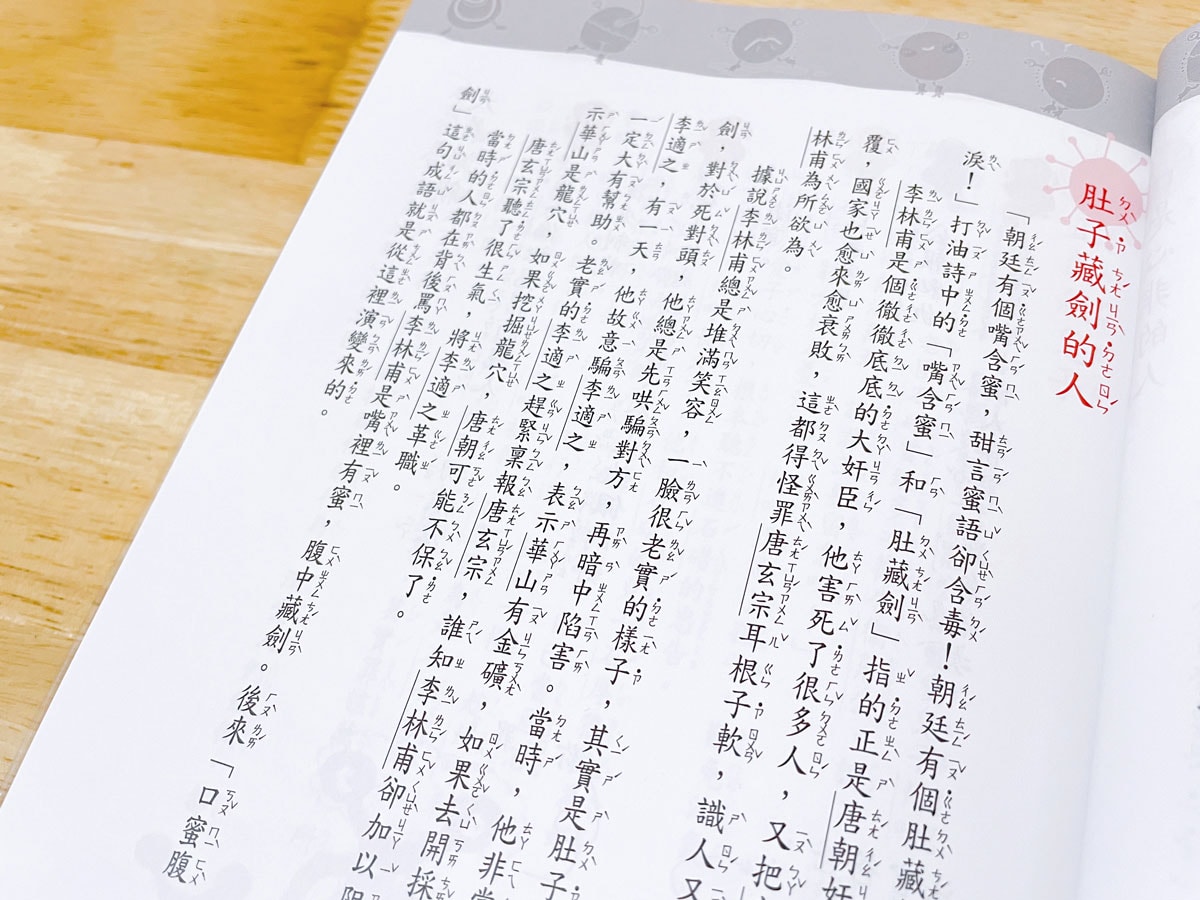 肚子藏劍的人
「朝廷有個嘴含蜜，甜言蜜語卻含毒！朝廷有個肚藏
淚！」打油詩中的「嘴含蜜」和「肚藏劍」指的正是唐朝奸
李林甫是個徹徹底底的大奸臣，他害死了很多人，又把
覆，國家也愈來愈衰敗，這都得怪罪唐玄宗耳根子軟，識人又
林甫為所欲為。
據說李林甫總是堆滿笑容，一臉很老實的樣子，其實是肚子
劍，對於死對頭，他總是先哄騙對方，再暗中陷害。當時，他非常
李適之，有一天，他故意騙李適之，表示華山有金礦，如果去開採
一定大有幫助。老實的李適之趕緊稟報唐玄宗，誰知李林甫卻加以阻
示華山是龍穴，如果挖掘龍穴，唐朝可能不保了。
唐玄宗聽了很生氣，將李適之革職。
當時的人都在背後罵李林甫是嘴裡有蜜，腹中藏劍。後來「口蜜腹
劍」這句成語就是從這裡演變來的。